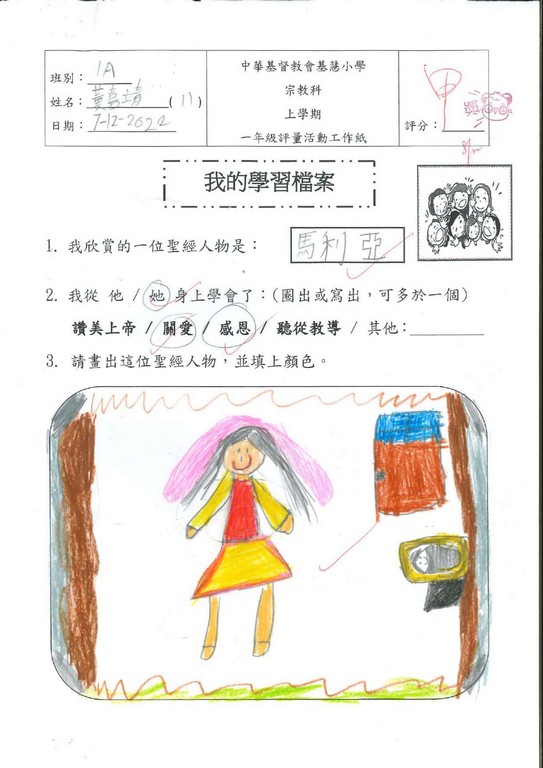 班別：1A
姓名：黃嘉靖(11)
日期：7-12-2022
中華基督教會基慧小學
宗教科
上學期
一年級評量活動工作紙
評分：甲
8/12
我的學習檔案
1. 我欣賞的一位聖經人物是： 馬利亞
2. 我從 他 / 她 身上學會了：(圈出或寫出，可多於一個)
讚美上帝 / 關愛 / 感恩 / 聽從教導 / 其他：
3. 請畫出這位聖經人物，並填上顏色。